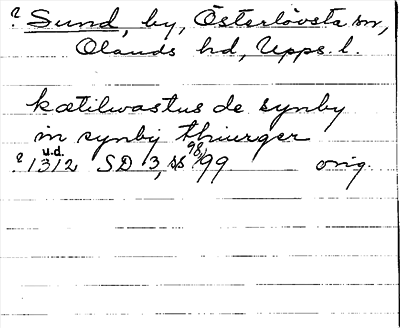 ? Sund, by, Österlövsta sn,
Olands hd, Upps. l.
kætilwastus de synby
in synbij thiurger
? 1312 u.d. SD 3, ss 98/99 orig.